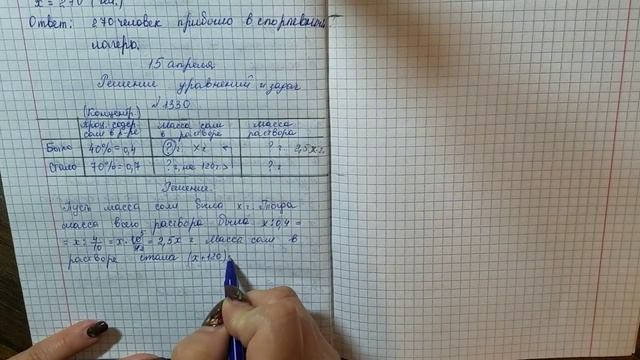 x = 270 (чел.)
Ответ: 270 человек прибыло в спортивный
лагерь.
15 апреля
Решение уравнений и задач
№1330
(Концентр.)
Проц. содер. соли в р-ре Масса соли в растворе Масса раствора
Было 40%=0,4 ? г. x г. ? г. 2,5x г.
Стало 70%=0,7 ? г, на 120г.> ? г
Решение.
Пусть масса соли была x г. Тогда
масса всего раствора была x:0,4 =
= x: 4/10 = x· = 2,5x г. Масса соли в
растворе стала (x+120)